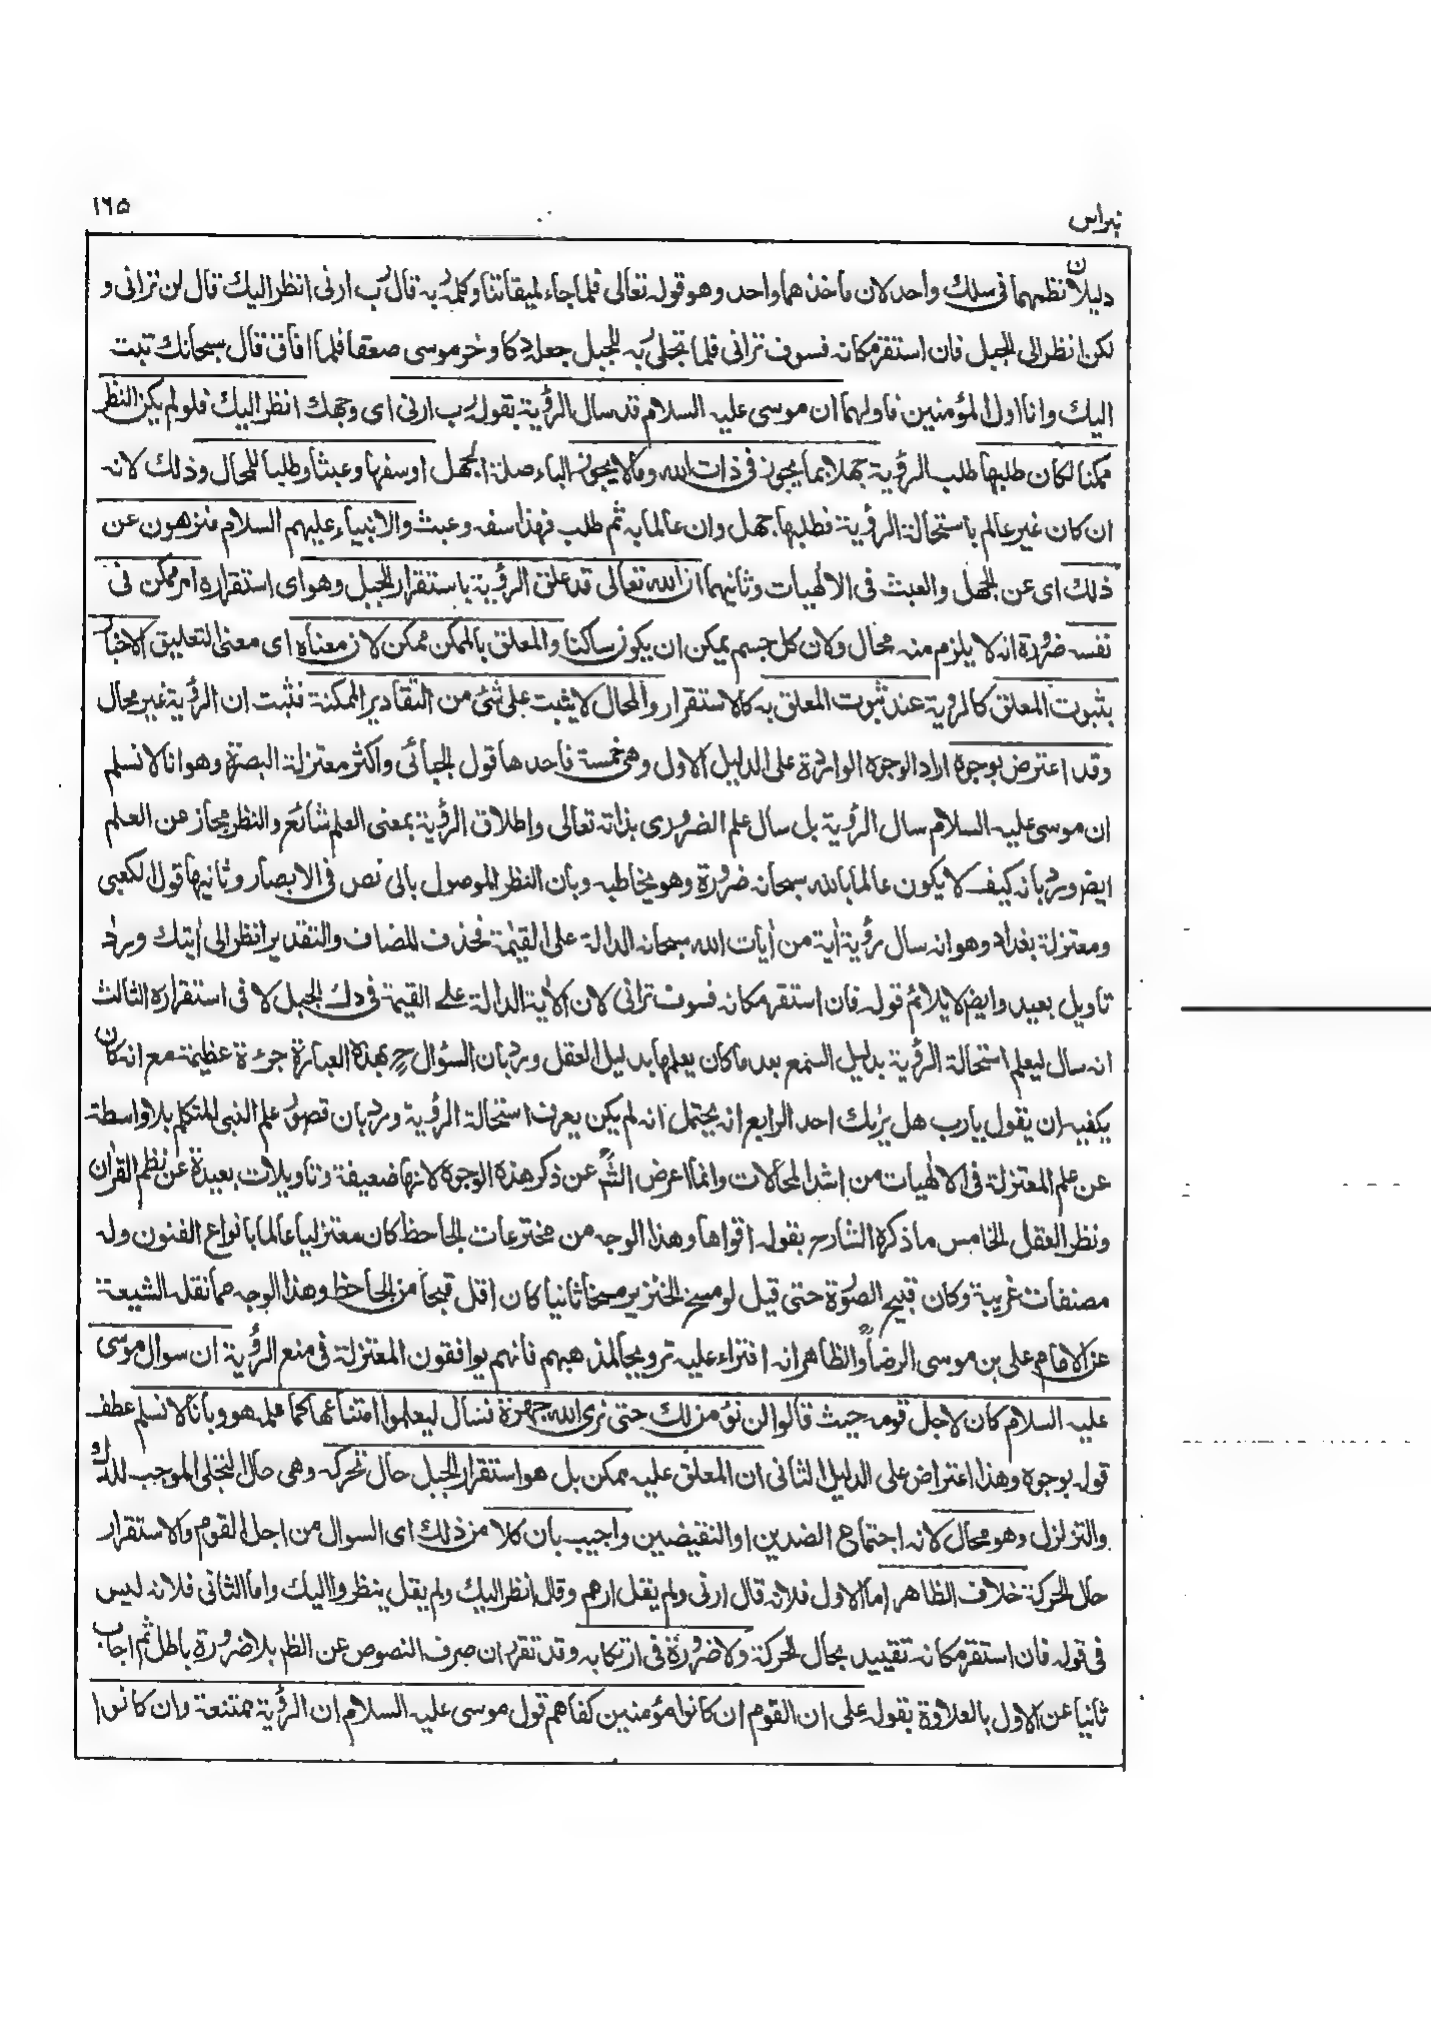 ۱۶۵
نبراس
دليلان نظمهما فى سلك واحد لان ماخذهما واحد وهو قوله تعالى فلما جاء لميقاتنا وكلمه ربه قال رب ارنى انظر اليك قال لن ترانى و
لكن انظر الى الجبل فان استقر مكانه فسوف ترانى فلما تجلى ربه للجبل جعله دكا وخر موسى صعقا فلما افاق قال سبحانك تبت
اليك وانا اول المؤمنين فاولهما ان موسى عليه السلام قد سال الرؤية بقوله رب ارنى اى وجهك انظر اليك فلو لم يكن النظر
ممكنا لكان طلبها طلب الرؤية جهلا بما يجوز فى ذات الله وما لا يجوز الباء صلة الجهل او سفها وعبثا وطلبا للمحال وذلك لانه
ان كان غير عالم باستحالة الرؤية فطلبها جهل وان عالما به ثم طلب فهذا سفه وعبث والانبياء عليهم السلام منزهون عن
ذلك اى عن الجهل والعبث فى الالهيات وثانيهما ان الله تعالى قد علق الرؤية باستقرار الجبل وهو اى استقراره امر ممكن فى
نفسه ضرورة انه لا يلزم منه محال ولان كل جسم يمكن ان يكون ساكنا والمعلق بالممكن ممكن لان معناه اى معنى التعليق الاخبار
بثبوت المعلق كالروية عند ثبوت المعلق به كالاستقرار والمحال لا يثبت على شئ من التقادير الممكنة فثبت ان الرؤية غير محال
وقد اعترض بوجوه اراد الوجوه الواردة على الدليل الاول وهى خمسة فاحدها قول الجبائى واكثر معتزلة البصرة وهو انا لا نسلم
ان موسى عليه السلام سال الرؤية بل سال علم الضرورى بذاته تعالى واطلاق الرؤية بمعنى العلم شائع والنظر مجاز عن العلم
ايضا ورد بانه كيف لا يكون عالما بالله سبحانه ضرورة وهو يخاطبه وبان النظر الموصول بالى نص فى الابصار وثانيها قول الكعبى
ومعتزلة بغداد وهو انه سال رؤية اية من أيات الله سبحانه الدالة على القيمة فحذف المضاف والتقدير انظر الى أيتك ورد بانه
تاويل بعيد وايضا لا يلائم قوله فان استقر مكانه فسوف ترانى لان الأية الدالة على القيمة فى دك الجبل لا فى استقراره الثالث
انه سال ليعلم استحالة الرؤية بدليل السمع بعد ما كان يعلمها بدليل العقل ورد بان السؤال ح بهذه العبارة جرءة عظيمة مع انه كان
يكفيه ان يقول يا رب هل يرىك احد الرابع انه يحتمل انه لم يكن يعرف استحالة الرؤية ورد بان قصور علم النبى المتكلم بلا واسطة
عن علم المعتزلة فى الالهيات من اشد المحالات وانما اعرض الش عن ذكر هذه الوجوه لانها ضعيفة وتاويلات بعيدة عن نظم القرأن
ونظر العقل الخامس ما ذكره الشارح بقوله اقواها وهذا الوجه من مخترعات الجاحظ كان معتزليا عالما بانواع الفنون وله
مصنفات غريبة وكان قبيح الصورة حتى قيل لو مسخ الخنزير مسخا ثانيا كان اقل قبحا من الجاحظ وهذا الوجه مما نقله الشيعة
عن الامام على بن موسى الرضا والظاهر انه افتراء عليه ترويجا لمذهبهم فانهم يوافقون المعتزلة فى منع الرؤية ان سوال موسى
عليه السلام كان لاجل قومه حيث قالوا لن نؤمن لك حتى نرى الله جهرة فسال ليعلموا امتناعها كما علمه هو وبانا لا نسلم عطف
قوله بوجوه وهذا اعتراض على الدليل الثانى ان المعلق عليه ممكن بل هو استقرار الجبل حال تحركه وهى حال التجلى الموجب للدك
والتزلزل وهو محال لانه اجتماع الضدين او النقيضين واجيب بان كلا من ذلك اى السوال من اجل القوم والاستقرار
حال الحركة خلاف الظاهر اما الاول فلانه قال ارنى ولم يقل ارهم وقال انظر اليك ولم يقل ينظروا اليك واما الثانى فلانه ليس
فى قوله فان استقر مكانه تقييد بحال الحركة ولا ضرورة فى ارتكابه وقد تقرر ان صرف النصوص عن الظم بلا ضرورة باطل ثم اجاب
ثانيا عن الاول بالعلاوة بقوله على ان القوم ان كانوا مؤمنين كفاهم قول موسى عليه السلام ان الرؤية ممتنعة وان كانوا